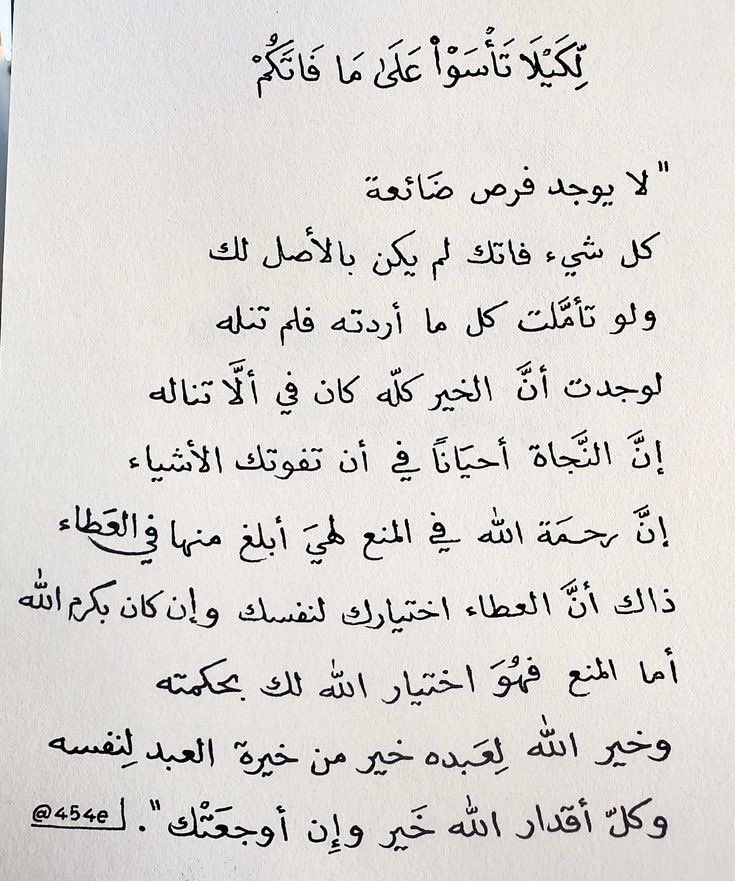 لِّكَيْلَا تَأْسَوْا۟ عَلَىٰ مَا فَاتَكُمْ
" لا يوجد فرص ضَائعة
كل شيء فاتك لم يكن بالأصل لك
ولو تأمَّلت كل ما أردته فلم تنله
لوجدت أنَّ الخير كلّه كان في ألَّا تناله
إنَّ النَّجاة أحيَاناً في أن تفوتك الأشياء
إنَّ رحمَة الله في المنع لهيَ أبلغ منها في العَطاء
ذاك أنَّ العطاء اختيارك لنفسك وإن كان بكرم الله
أما المنع فهُوَ اختيار الله لك بحكمته
وخير الله لِعَبده خير من خيرة العبد لِنفسه
وكلّ أقدار الله خَير وإِن أوجعَتْك ". لـ @454e